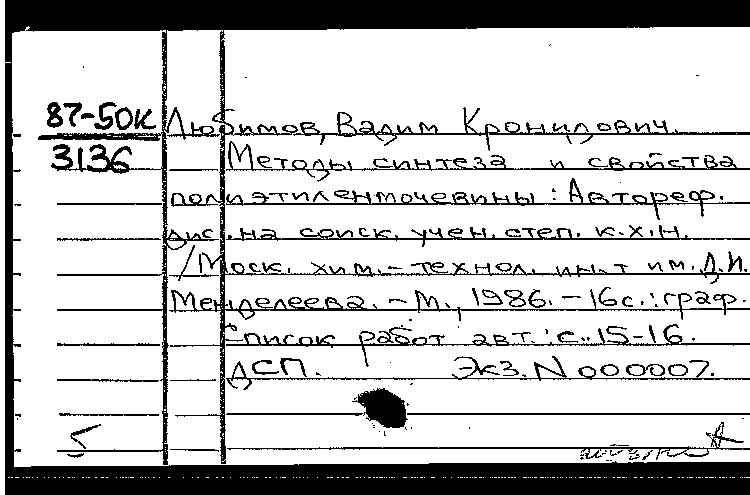 87-50к
3136
Любимов, Вадим Кронидович.
Методы синтеза и свойства
полиэтиленмочевины: Автореф.
дис. на соиск. учен. степ. к.х.н.
/Моск. хим.-технол. ин-т им. Д.И.
Менделеева. - М., 1986. - 16с.: граф.
Список работ авт.: с. 15-16.
ДСП. Экз. N 000007.
5